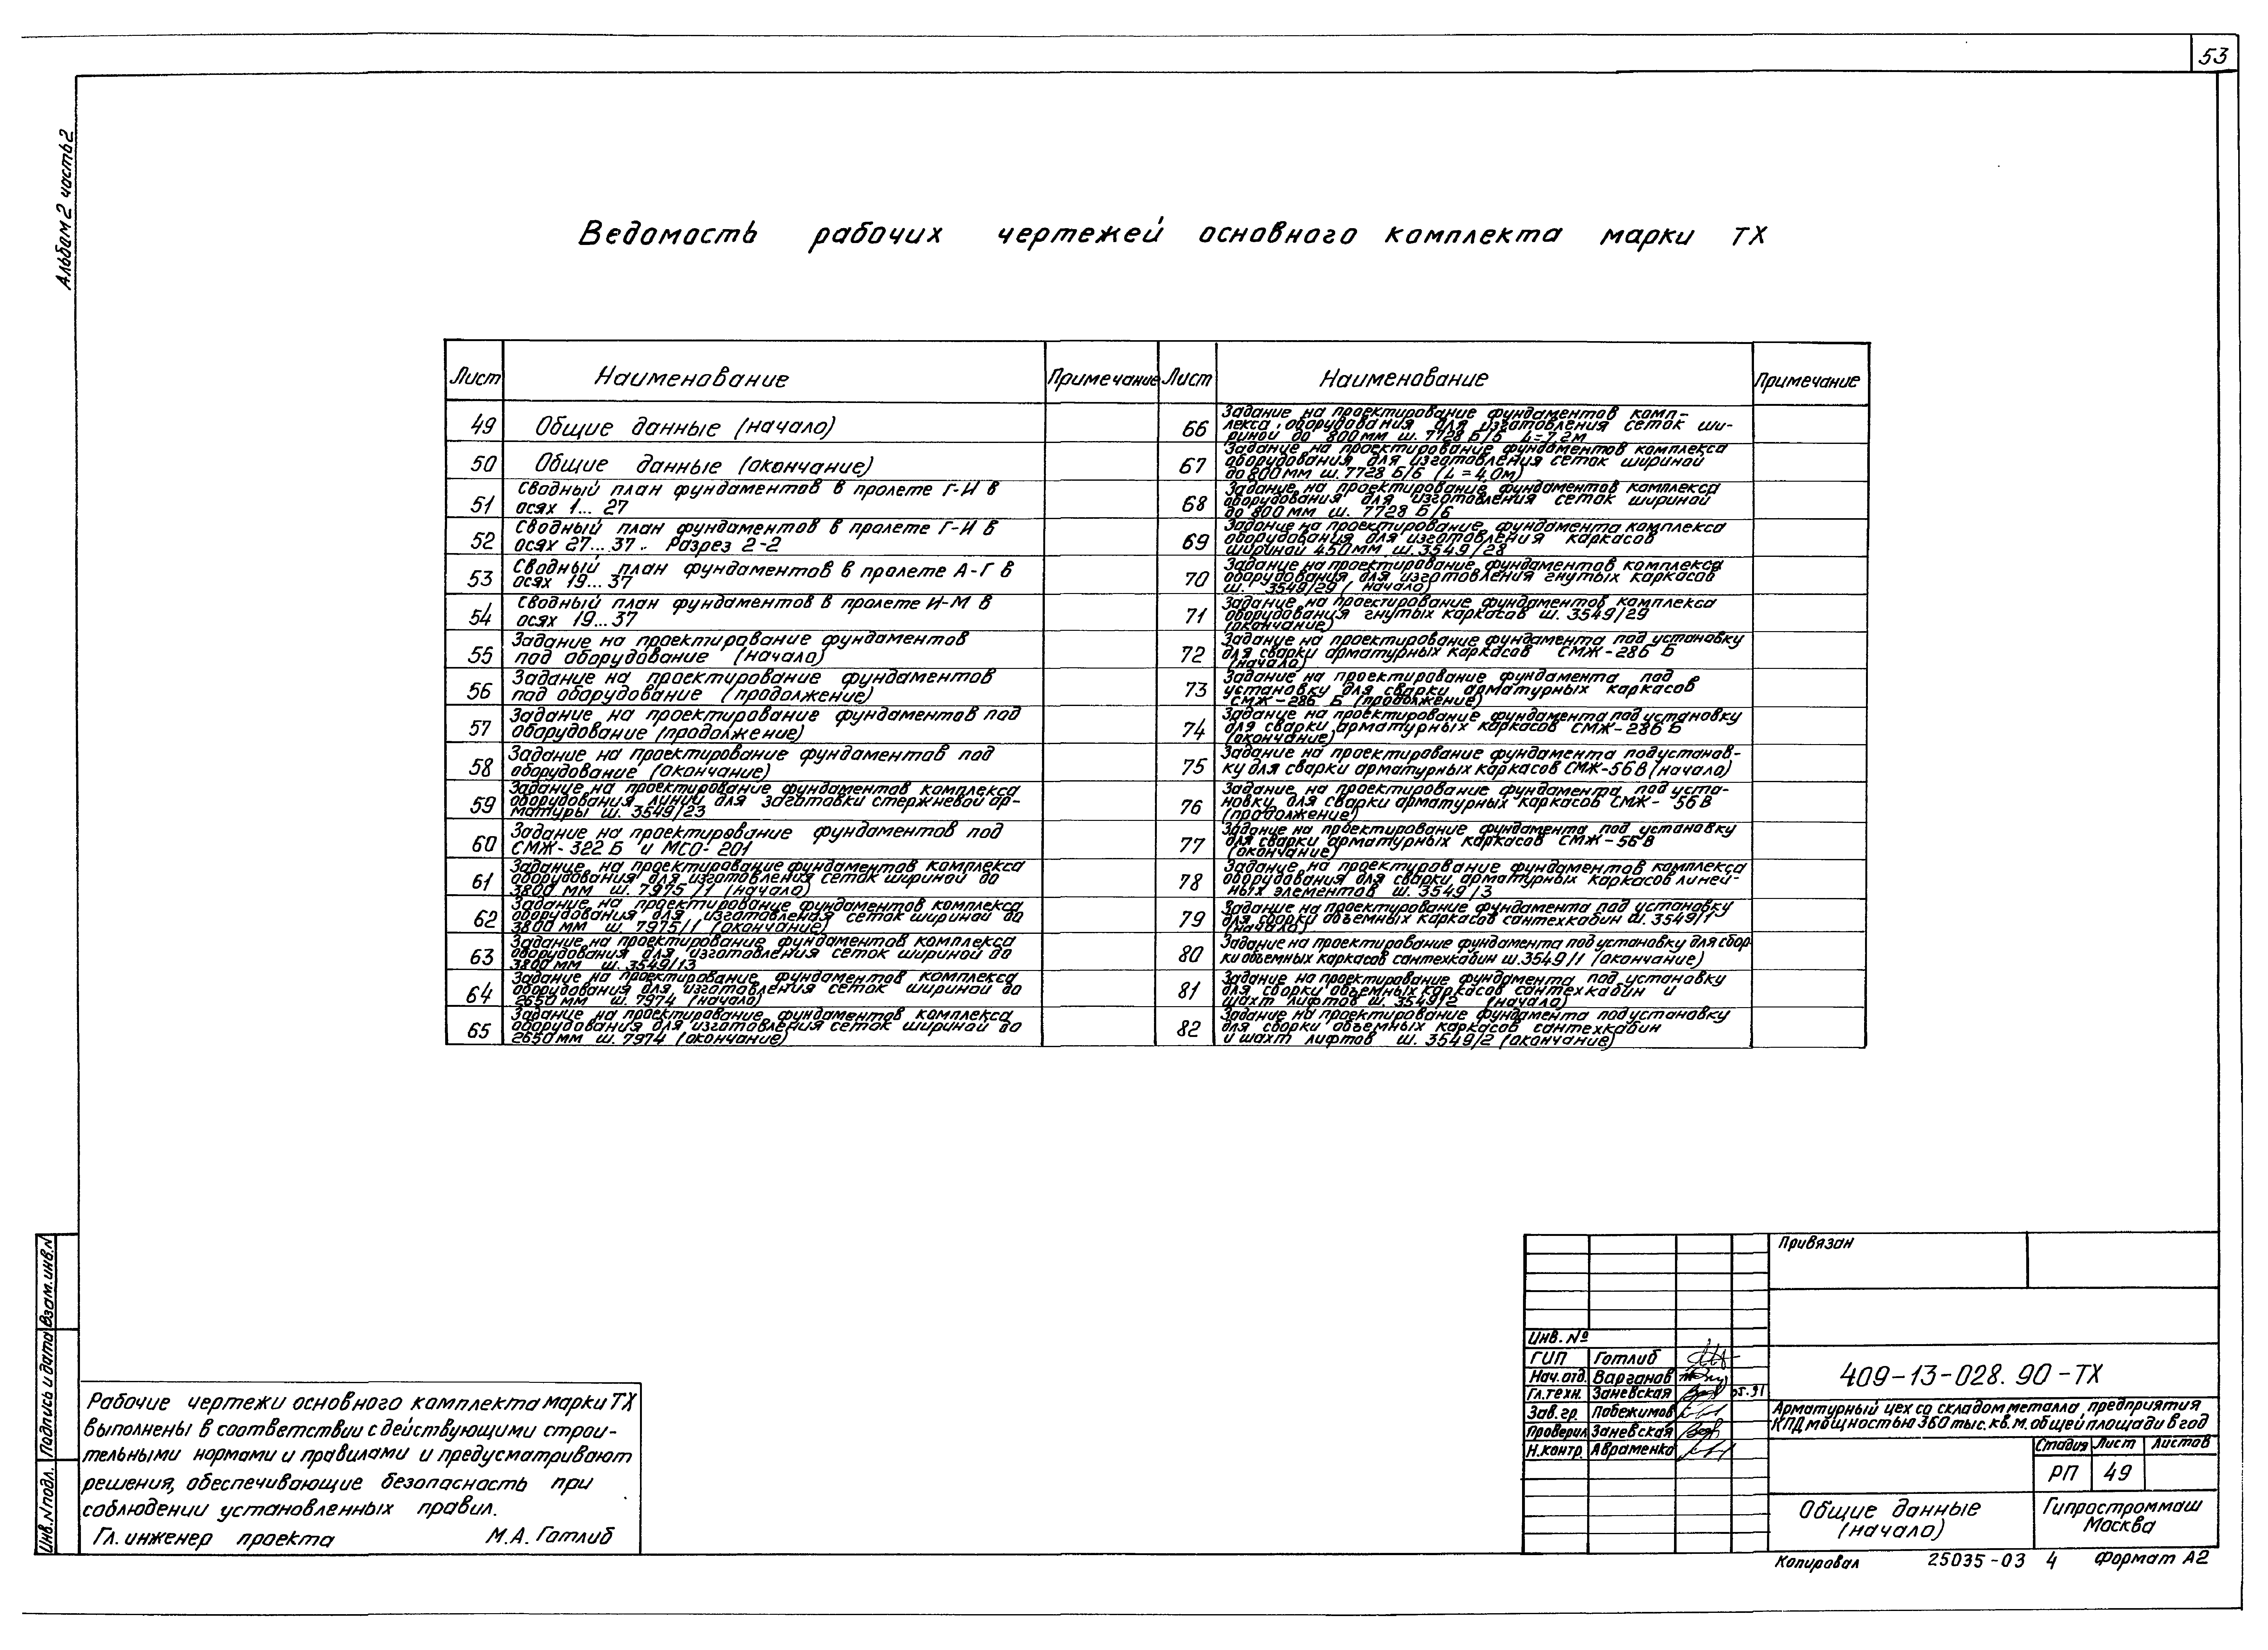 53
Альбом 2 часть 2
Ведомость рабочих чертежей основного комплекта марки ТХ
Лист Наименование Примечание Лист Наименование Примечание
49 Общие данные (начало)
50 Общие данные (окончание)
51 Сводный план фундаментов в пролете Г-И в
осях 1...27
52 Сводный план фундаментов в пролете Г-И в
осях 27...37. Разрез 2-2
53 Сводный план фундаментов в пролете А-Г в
осях 19...37
54 Сводный план фундаментов в пролете И-М в
осях 19...37
55 Задание на проектирование фундаментов
под оборудование (начало)
56 Задание на проектирование фундаментов
под оборудование (продолжение)
57 Задание на проектирование фундаментов под
оборудование (продолжение)
58 Задание на проектирование фундаментов под
оборудование (окончание)
59 Задание на проектирование фундаментов комплекса
оборудования линии для заготовки стержневой ар-
матуры ш. 3549/23
60 Задание на проектирование фундаментов под
СМЖ-322 Б и МСО-201
61 Задание на проектирование фундаментов комплекса
оборудования для изготовления сеток шириной до
3800 мм ш. 7975/1 (начало)
62 Задание на проектирование фундаментов комплекса
оборудования для изготовления сеток шириной до
3800 мм ш. 7975/1 (окончание)
63 Задание на проектирование фундаментов комплекса
оборудования для изготовления сеток шириной до
3800 мм ш. 3549/13
64 Задание на проектирование фундаментов комплекса
оборудования для изготовления сеток шириной до
2650 мм ш. 7974 (начало)
65 Задание на проектирование фундаментов комплекса
оборудования для изготовления сеток шириной до
2650 мм ш. 7974 (окончание)
66 Задание на проектирование фундаментов комп-
лекса оборудования для изготовления сеток ши-
риной до 800 мм ш. 7728 Б/5 L=7,2м
67 Задание на проектирование фундаментов комплекса
оборудования для изготовления сеток шириной
до 800 мм ш. 7728 Б/6 (L=4,0м)
68 Задание на проектирование фундаментов комплекса
оборудования для изготовления сеток шириной
до 800 мм ш. 7728 Б/6
69 Задание на проектирование фундамента комплекса
оборудования для изготовления каркасов
шириной 450 мм ш. 3549/28
70 Задание на проектирование фундаментов комплекса
оборудования для изготовления гнутых каркасов
ш. 3549/29 (начало)
71 Задание на проектирование фундаментов комплекса
оборудования гнутых каркасов ш. 3549/29
(окончание)
72 Задание на проектирование фундамента под установку
для сварки арматурных каркасов СМЖ-286 Б
(начало)
73 Задание на проектирование фундамента под
установку для сварки арматурных каркасов
СМЖ-286 Б (продолжение)
74 Задание на проектирование фундамента под установку
для сварки арматурных каркасов СМЖ-286 Б
(окончание)
75 Задание на проектирование фундамента под установ-
ку для сварки арматурных каркасов СМЖ-56В (начало)
76 Задание на проектирование фундамента под уста-
новку для сварки арматурных каркасов СМЖ-56В
(продолжение)
77 Задание на проектирование фундамента под установку
для сварки арматурных каркасов СМЖ-56В
(окончание)
78 Задание на проектирование фундаментов комплекса
оборудования для сварки арматурных каркасов линей-
ных элементов ш. 3549/3
79 Задание на проектирование фундамента под установку
для сборки объемных каркасов сантехкабин ш. 3549/1
(начало)
80 Задание на проектирование фундамента под установку для сбор
ки объемных каркасов сантехкабин ш. 3549/1 (окончание)
81 Задание на проектирование фундамента под установку
для сборки объемных каркасов сантехкабин и
шахт лифтов ш. 3549/2 (начало)
82 Задание на проектирование фундамента под установку
для сборки объемных каркасов сантехкабин
и шахт лифтов ш. 3549/2 (окончание)
Рабочие чертежи основного комплекта марки ТХ
выполнены в соответствии с действующими строи-
тельными нормами и правилами и предусматривают
решения, обеспечивающие безопасность при
соблюдении установленных правил.
Гл. инженер проекта М.А. Готлиб
Инв.N подл. Подпись и дата Взам.инв.N
Привязан
Инв. №
ГИП Готлиб
Нач. отд. Варганов
Гл. техн. Заневская 05.91
Зав. гр. Побежимов
Проверил Заневская
Н. контр. Авраменко
409-13-028.90-ТХ
Арматурный цех со складом металла предприятия
КПД мощностью 360 тыс. кв. м. общей площади в год
Стадия Лист Листов
РП 49
Общие данные
(начало)
Гипростроммаш
Москва
Копировал 25035-03 4 Формат А2